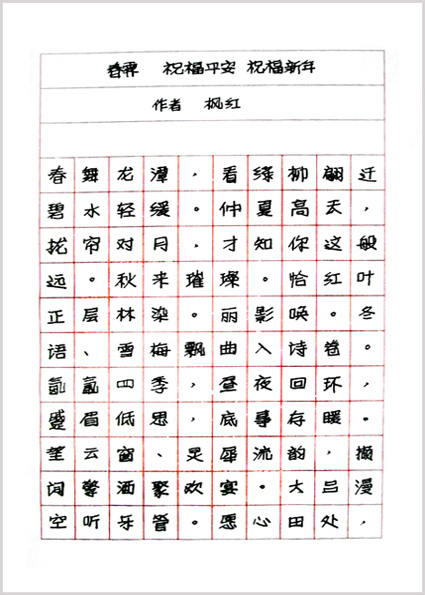 春霁 祝福平安 祝福新年
作者 枫红
春舞龙潭，看绦柳翩迁
碧水轻缓。仲夏高天，
拢帘对月，才知你这般
远。秋来璀璨。恰红叶
正层林染。丽影唤。冬
语、雪梅飘曲入诗卷。
氤氲四季，昼夜回环，
蹙眉低思，底事存暖。
笙云窗、灵犀流韵，撷
闲擎酒聚欢宴。大吕漫
空听乐管。愿心田处，